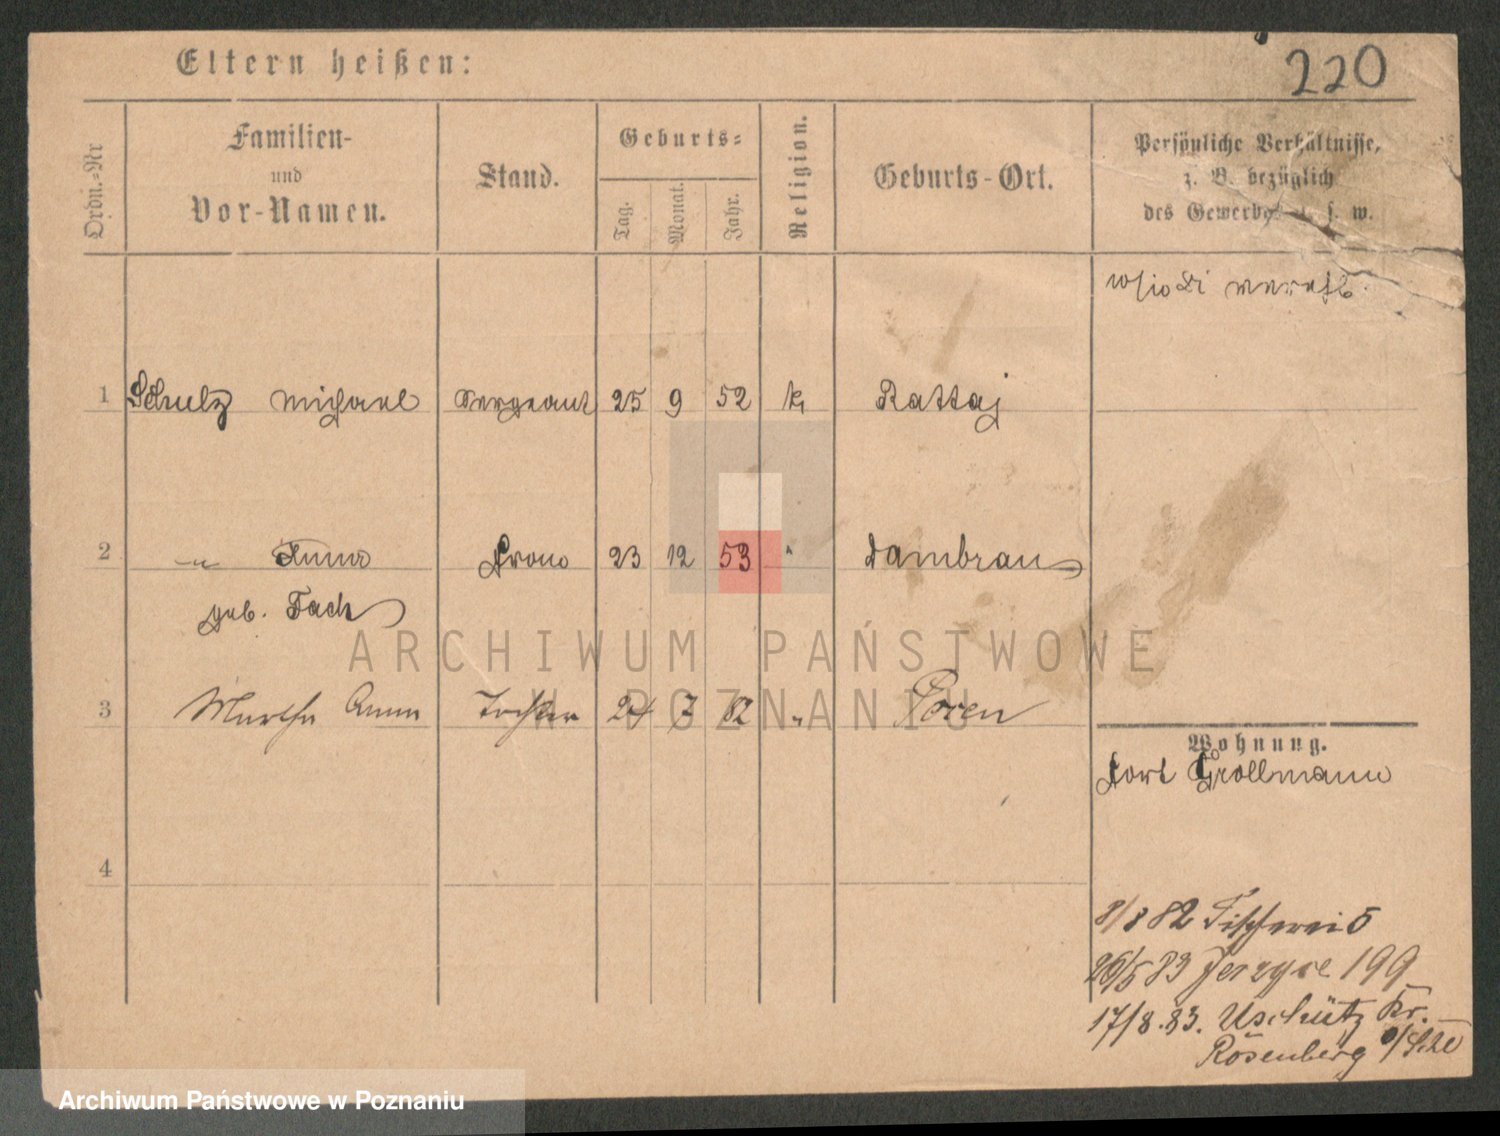 220
Eltern heißen:
Ordn.-Nr
Familien-
und
Vor-Namen.
Stand.
Geburts-
Tag.
Monat.
Jahr.
Religion.
Geburts-Ort.
Persönliche Verhältnisse,
z. B. bezüglich
des Gewerbes u. s. w.
1 Schulz Michael Sergeant 25 9 52 k Rattaj
2 -"- Anna Frau 23 12 53 " Dambrau
geb. Fach
3 Martha Anna Tochter 24 7 82 " Posen
Wohnung.
Fort Grollmann
4
8/8 82 Fischerei 5
26/5 83 Jerzyce 199
17/8.83. Uschütz Kr.
Rosenberg o/Schl
ARCHIWUM PAŃSTWOWE
W POZNANIU
Archiwum Państwowe w Poznaniu